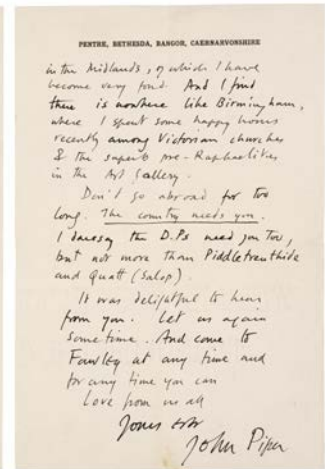 PENTRE, BETHESDA, BANGOR, CAERNARVONSHIRE
in the Midlands, of which I have
become very fond. And I find
there is nowhere like Birmingham,
where I spent some happy hours
recently among Victorian churches
& the superb pre-Raphaelites
in the Art Gallery.
Don't go abroad for too
long. The country needs you.
I daresay the D.Ps need you too,
but not more than Piddletrenthide
and Quatt (Salop).
It was delightful to hear
from you. Let us again
sometime. And come to
Fawley at any time and
for any time you can
Love from us all
Yours ever
John Piper